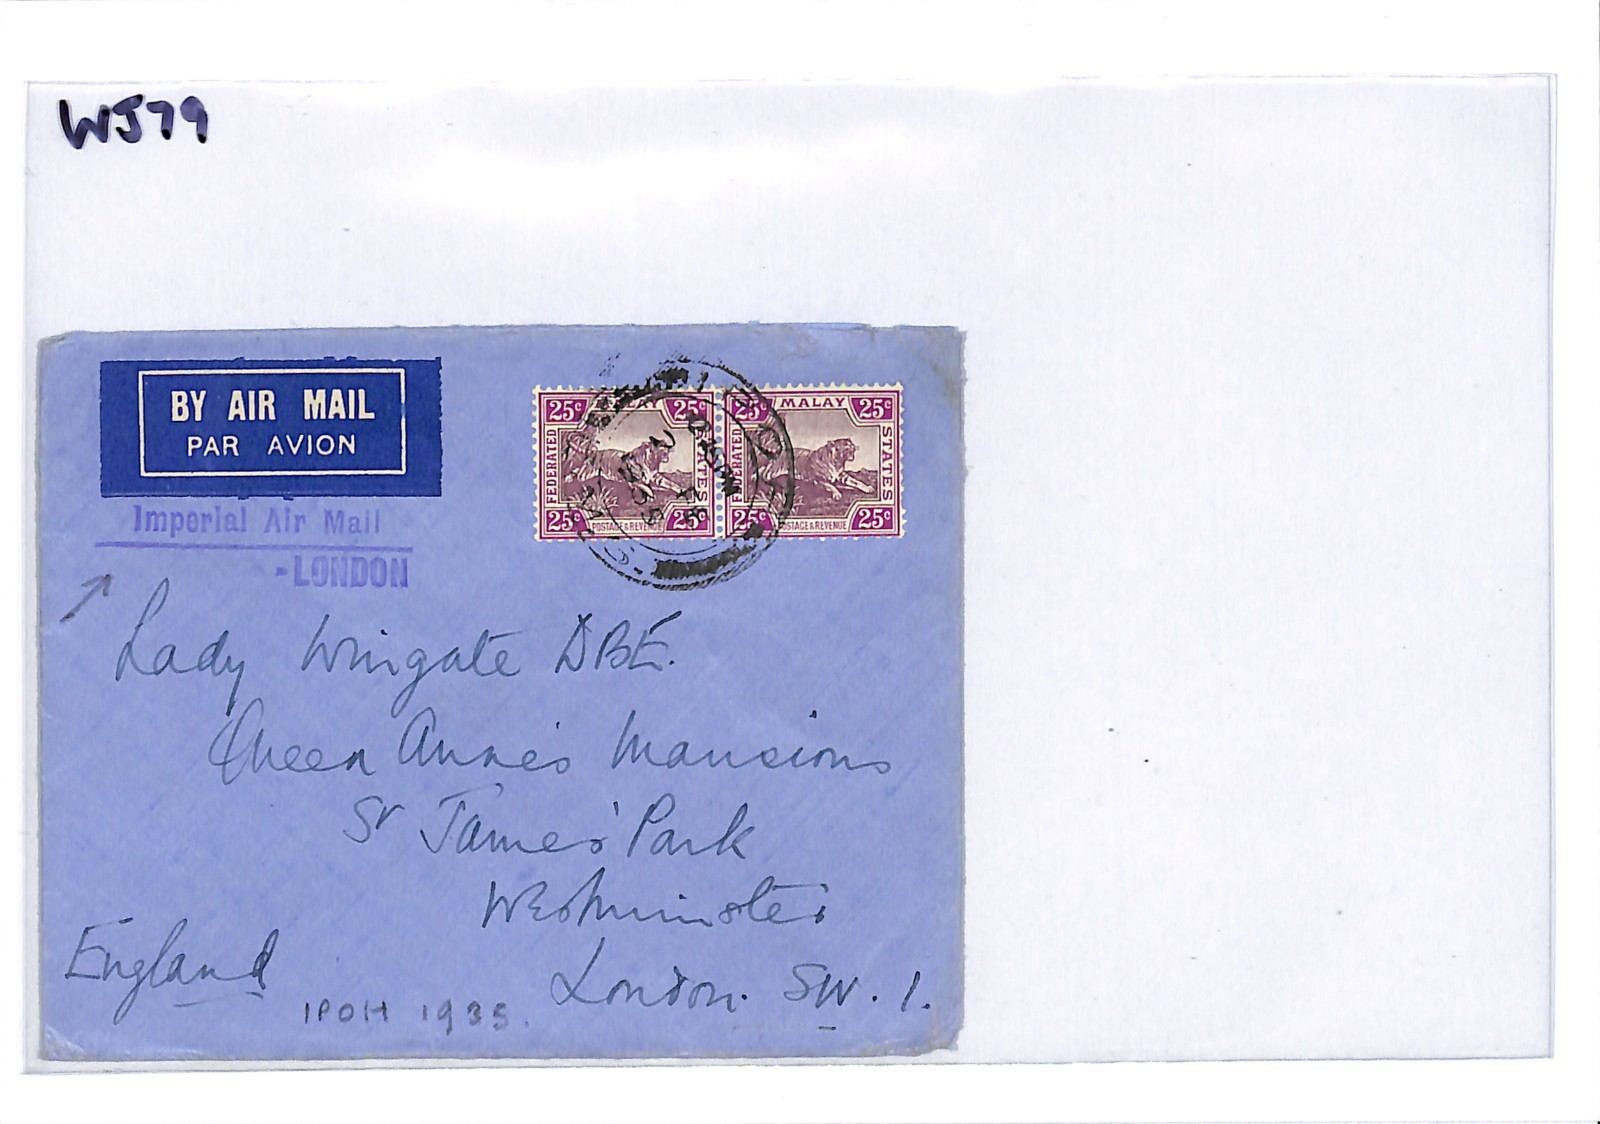 WJ79
BY AIR MAIL
PAR AVION
Imperial Air Mail
-LONDON
25c MALAY 25c
FEDERATED
STATES
25c POSTAGE & REVENUE 25c
25c MALAY 25c
FEDERATED
STATES
25c POSTAGE & REVENUE 25c
Lady Wingate DBE.
Queen Anne's Mansions
St James' Park
Westminster
England
London. SW. 1.
IPOH 1935.